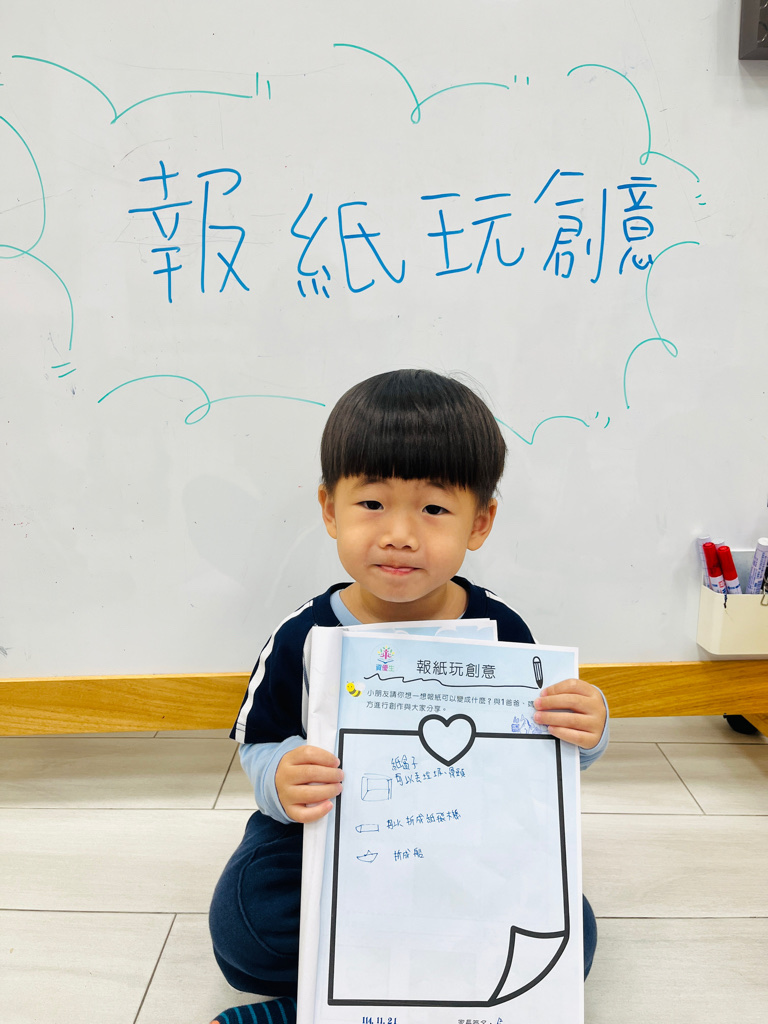 報紙玩創意
資優生
報紙玩創意
小朋友請你想一想報紙可以變成什麼？與1爸爸、媽
方進行創作與大家分享。
紙盒子
可以丟垃圾、
可以折成紙飛機
折成船
114.11.21
家長簽名：